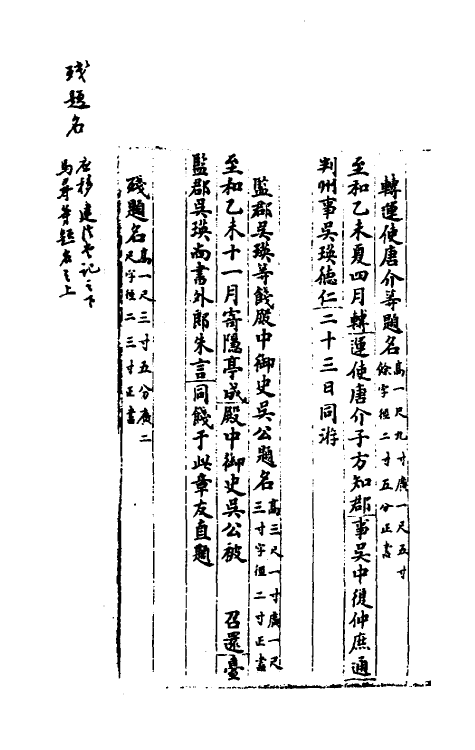 轉運使唐介等題名高一尺九寸廣一尺五寸
餘字徑二寸五分正書
至和乙未夏四月轉運使唐介子方知郡事吳中復仲庶通
判州事吳瑛德仁二十三日同游
監郡吳瑛等餞殿中御史吳公題名高三尺一寸廣一尺
三寸字徑二寸正書
至和乙未十一月寄隱亭成殿中御史吳公被 召還臺
監郡吳瑛尚書外郎朱言同餞于此章友直題
殘題名高一尺三寸五分廣二
尺字徑二三寸正書
殘題名
應移建
記之下
馬尋等題名之上